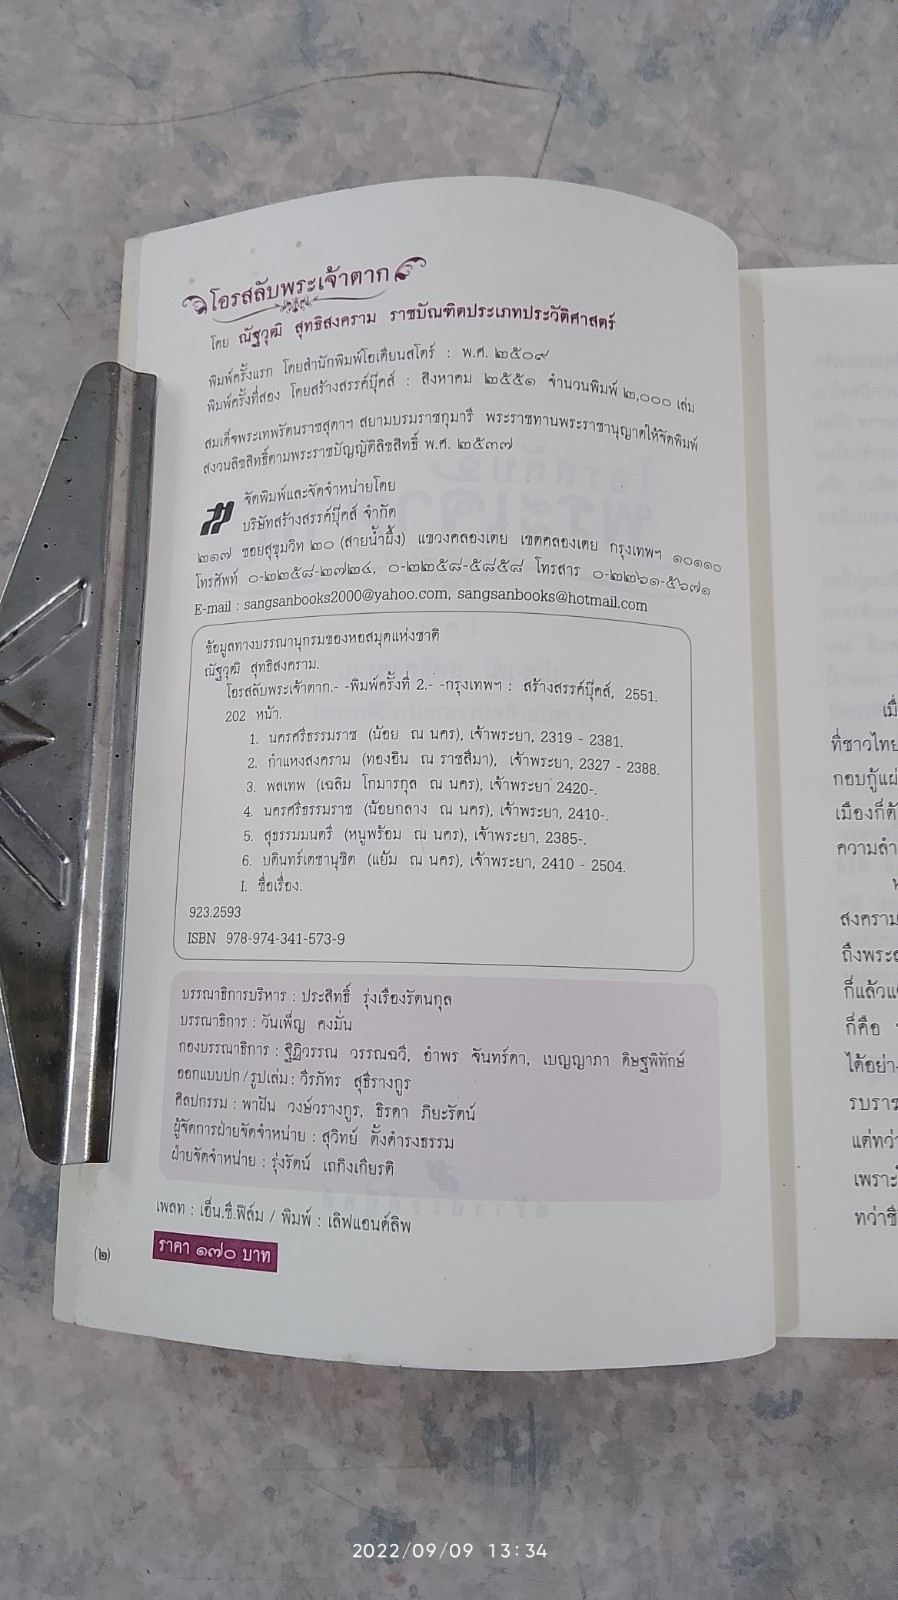 โอรสลับพระเจ้าตาก
โดย ณัฐวุฒิ สุทธิสงคราม ราชบัณฑิตประเภทประวัติศาสตร์
พิมพ์ครั้งแรก โดยสำนักพิมพ์โอเดียนสโตร์ : พ.ศ. ๒๕๐๙
พิมพ์ครั้งที่สอง โดยสร้างสรรค์บุ๊คส์ : สิงหาคม ๒๕๕๑ จำนวนพิมพ์ ๒,๐๐๐ เล่ม
สมเด็จพระเทพรัตนราชสุดาฯ สยามบรมราชกุมารี พระราชทานพระราชานุญาตให้จัดพิมพ์
สงวนลิขสิทธิ์ตามพระราชบัญญัติลิขสิทธิ์ พ.ศ. ๒๕๓๗
จัดพิมพ์และจัดจำหน่ายโดย
บริษัทสร้างสรรค์บุ๊คส์ จำกัด
๒๑๗ ซอยสุขุมวิท ๒๐ (สายน้ำผึ้ง) แขวงคลองเตย เขตคลองเตย กรุงเทพฯ ๑๐๑๑๐
โทรศัพท์ ๐-๒๒๕๘-๒๗๒๔, ๐-๒๒๕๘-๕๘๕๘ โทรสาร ๐-๒๒๖๑-๕๖๗๑
E-mail : sangsanbooks2000@yahoo.com, sangsanbooks@hotmail.com
ข้อมูลทางบรรณานุกรมของหอสมุดแห่งชาติ
ณัฐวุฒิ สุทธิสงคราม.
โอรสลับพระเจ้าตาก.- -พิมพ์ครั้งที่ 2.- -กรุงเทพฯ : สร้างสรรค์บุ๊คส์, 2551.
202 หน้า.
1. นครศรีธรรมราช (น้อย ณ นคร), เจ้าพระยา, 2319 - 2381.
2. กำแหงสงคราม (ทองอิน ณ ราชสีมา), เจ้าพระยา, 2327 - 2388.
3. พลเทพ (เฉลิม โกมารกุล ณ นคร), เจ้าพระยา 2420-.
4. นครศรีธรรมราช (น้อยกลาง ณ นคร), เจ้าพระยา, 2410-.
5. สุธรรมมนตรี (หนูพร้อม ณ นคร), เจ้าพระยา, 2385-.
6. บดินทร์เดชานุชิต (แย้ม ณ นคร), เจ้าพระยา, 2410 - 2504.
I. ชื่อเรื่อง.
923.2593
ISBN 978-974-341-573-9
บรรณาธิการบริหาร : ประสิทธิ์ รุ่งเรืองรัตนกุล
บรรณาธิการ : วันเพ็ญ คงมั่น
กองบรรณาธิการ : ฐิฏิวรรณ วรรณฉวี, อำพร จันทร์ดา, เบญญาภา ดิษฐพิทักษ์
ออกแบบปก/รูปเล่ม : วีรภัทร สุธีรางกูร
ศิลปกรรม : พาฝัน วงษ์วรางกูร, ธิรดา ภิยะรัตน์
ผู้จัดการฝ่ายจัดจำหน่าย : สุวิทย์ ตั้งดำรงธรรม
ฝ่ายจัดจำหน่าย : รุ่งรัตน์ เถกิงเกียรติ
เพลท : เอ็น.ซี.ฟิล์ม / พิมพ์ : เลิฟแอนด์ลิพ
ราคา ๑๗๐ บาท
(๒)
ที่ชาวไทย
กอบกู้แผ่
สงคราม
ก็คือ
2022/09/09 13:34